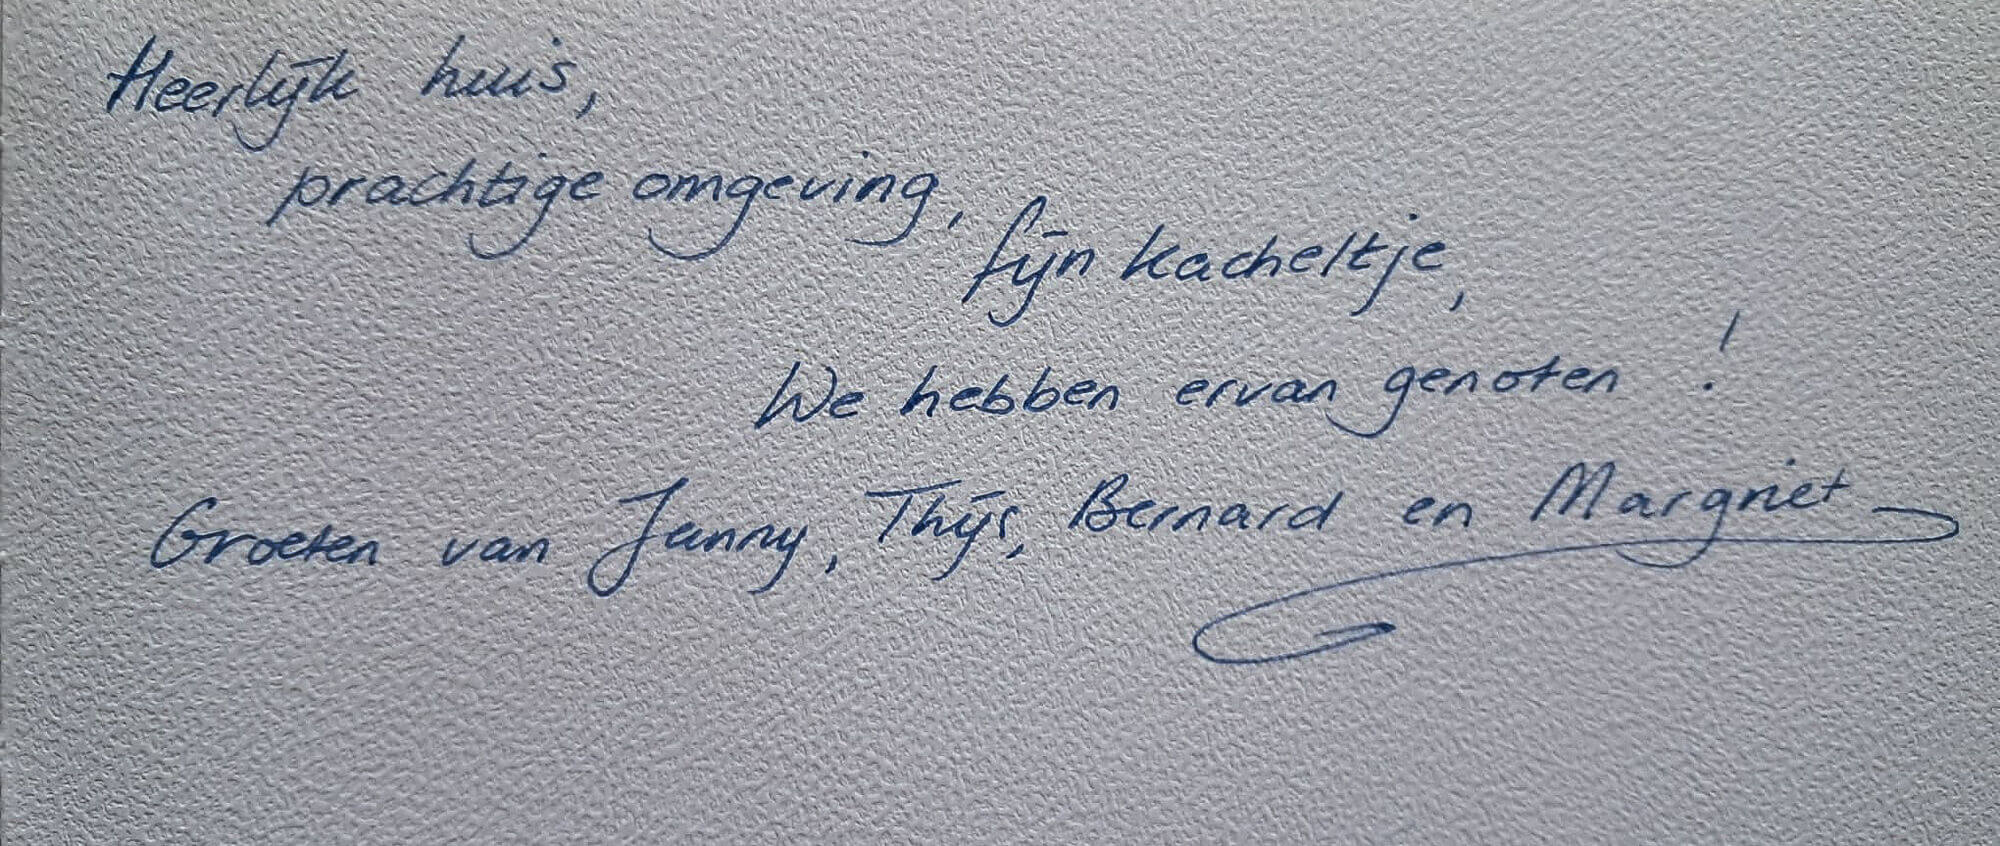 Heerlijk huis,
prachtige omgeving,
fijn kacheltje,
We hebben ervan genoten !
Groeten van Janny, Thijs, Bernard en Margriet